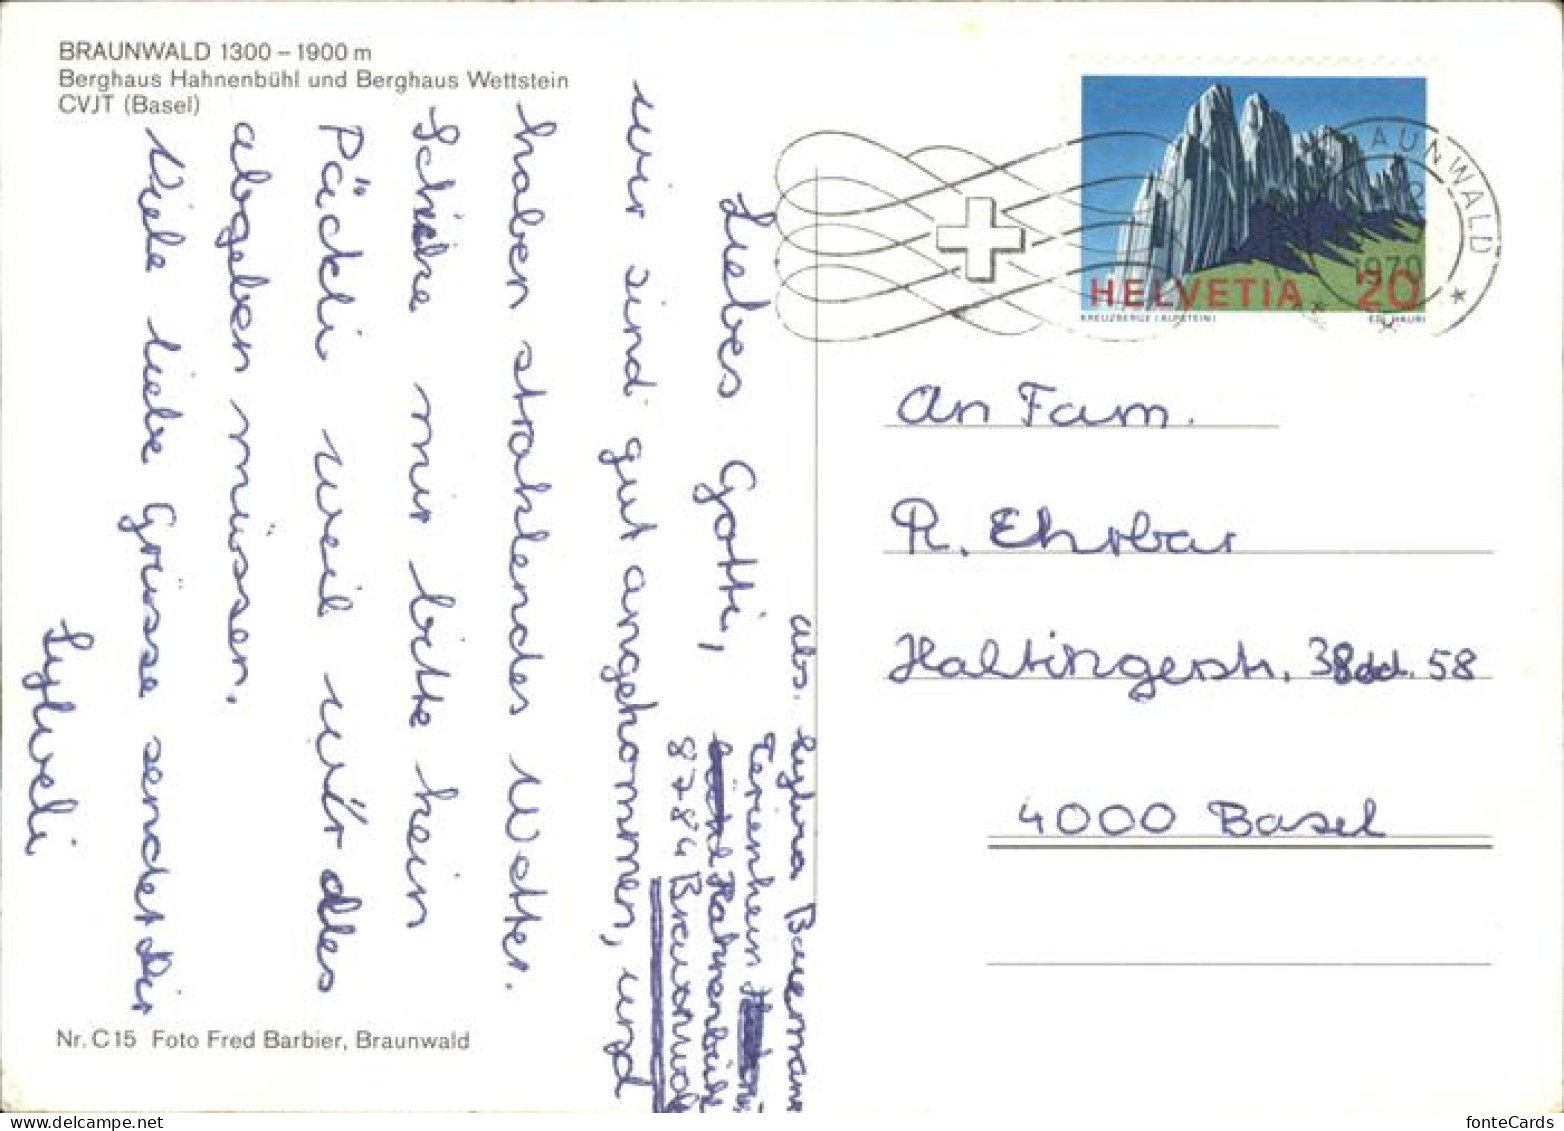 BRAUNWALD 1300 – 1900 m
Berghaus Hahnenbühl und Berghaus Wettstein
CVJT (Basel)
Liebes Gotti,
wir sind gut angekommen, und
haben strahlendes Wetter.
Schicke mir bitte kein
Päckli weil wir alles
abgeben müssen.
Viele liebe Grüsse sendet Dir
Sylveli
abs. Sylvia Bauermann
Ferienheim
Hahnenbühl
8784 Braunwald
HELVETIA 20
KREUZBERGE (ALPSTEIN) ED. HAURI
AUNWALD
1970
An Fam.
R. Ehrbar
Haltingerstr. 58
4000 Basel
Nr. C15 Foto Fred Barbier, Braunwald
fonteCards